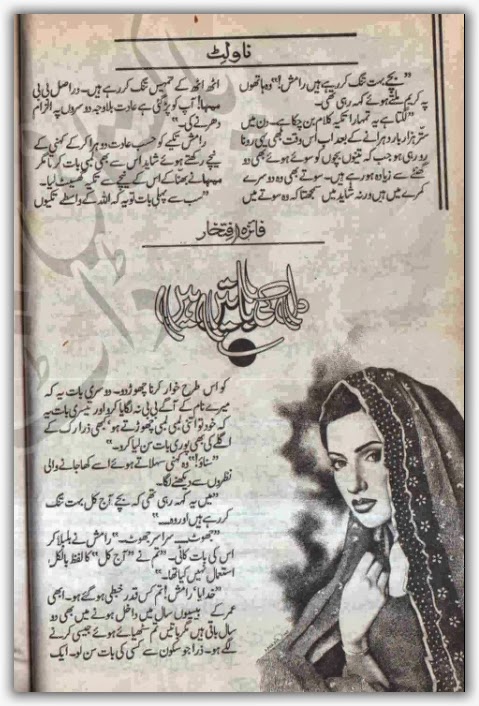 ناولٹ
”بچے بہت تنگ کر رہے ہیں رامش!“ وہ ہاتھوں
پہ کریم ملتے ہوئے کہہ رہی تھی۔
”لگتا ہے یہ تمہارا تکیہ کلام بن چکا ہے۔ دن میں
ستر ہزار بار دہرانے کے بعد اب اس وقت بھی یہی رونا
رو رہی ہو جب کہ تینوں بچوں کو سوئے ہوئے بھی دو
گھنٹے سے زیادہ ہو رہے ہیں۔ سوتے بھی وہ دوسرے
کمرے میں ہیں ورنہ شاید میں سمجھتا کہ وہ سوتے میں
اٹھ اٹھ کے تمہیں تنگ کر رہے ہیں۔ دراصل بی بی
صہبا! آپ کو پڑ گئی ہے عادت بلاوجہ دوسروں پہ الزام
دھرنے کی۔“
رامش تکیے کو حسب عادت دوہرا کر کے کہنی کے
نیچے رکھتے ہوئے شاید اس سے بھی لمبی بات کرتا مگر
صہبا نے بھنا کے اس کے نیچے سے تکیہ گھسیٹ لیا۔
”سب سے پہلی بات تو یہ کہ اللہ کے واسطے تکیوں
فائزہ افتخار
دل کی باتیں ہیں
کو اس طرح خوار کرنا چھوڑ دو۔ دوسری بات یہ کہ
میرے نام کے آگے بی بی نہ لگایا کرو اور تیسری بات یہ
کہ خود تو اتنی لمبی لمبی چھوڑتے ہو، کبھی ذرا رک کے
اگلے کی بھی پوری بات سن لیا کرو۔“
”سناؤ!“ وہ کہنی سہلاتے ہوئے اسے کھا جانے والی
نظروں سے دیکھنے لگا۔
”میں یہ کہہ رہی تھی کہ بچے آج کل بہت تنگ
کر رہے ہیں اور وہ۔۔“
”جھوٹ۔۔ سراسر جھوٹ۔۔“ رامش نے بلبلا کر
اس کی بات کاٹی۔ ”تم نے ”آج کل“ کا لفظ بالکل
استعمال نہیں کیا تھا۔“
”خدایا، رامش! تم کس قدر خبطی ہو گئے ہو۔ ابھی
عمر کے میں داخل ہونے میں بھی دو
سال باقی ہیں مگر باتیں تم سٹھیائے ہوئے جیسی کرنے
لگے ہو۔ ذرا جو سکون سے کسی کی بات سن لو۔ ایک